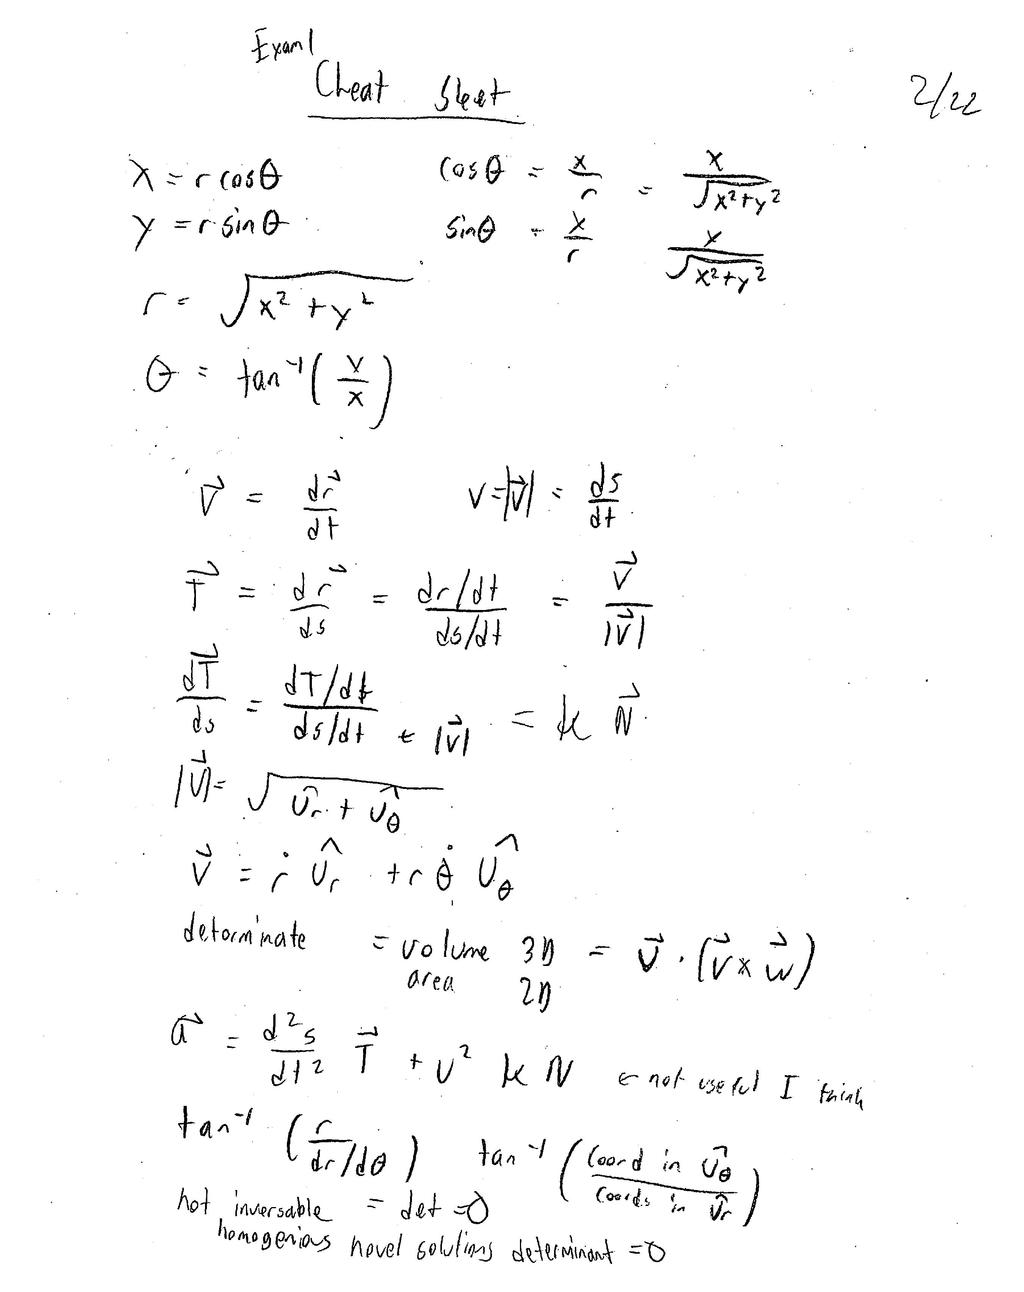 Exam 1
Cheat Sheet
2/22
x = r cosθ
cosθ = x/r = x/√(x²+y²)
y = r sinθ
sinθ = y/r y/√(x²+y²)
r = √(x² + y²)
θ = tan⁻¹(y/x)
v⃗ = dr⃗/dt
v=|v⃗| = ds/dt
T⃗ = dr⃗/ds = (dr/dt)/(ds/dt) = v⃗/|v⃗|
dT⃗/ds = (dT/dt)/(ds/dt) ← |v⃗| = k N⃗
|v⃗| = √(û_r + û_θ)
v⃗ = ṙ û_r + r θ̇ û_θ
determinate = volume 3D = u⃗ · (v⃗ x w⃗)
area 2D
a⃗ = d²s/dt² T⃗ + v² k N ← not useful I think
tan⁻¹ (r/(dr/dθ)) tan⁻¹ (coord in û_θ/coords in û_r)
not inversable = det = 0
homogenious novel solutions determinant = 0